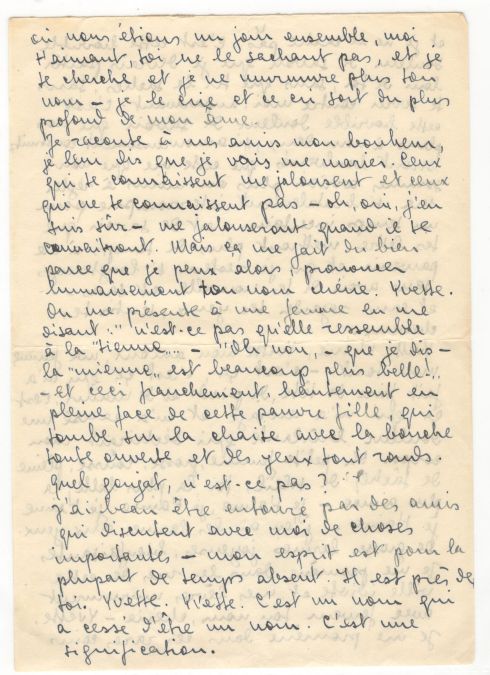 où nous étions un jour ensemble, moi
t'aimant, toi ne le sachant pas, et je
te cherche, et je ne murmure plus ton
nom – je le crie, et ce cri sort du plus
profond de mon âme.
Je raconte à mes amis mon bonheur,
je leur dis que je vais me marier. Ceux
qui te connaissent me jalousent et ceux
qui ne te connaissent pas – oh, oui, j'en
suis sûr – me jalouseront quand ils te
connaitront. Mais ça me fait du bien
parce que je peux alors, prononcer
humainement ton nom chérie. Yvette.
On me présente à une femme en me
disant: "n'est-ce pas qu'elle ressemble
à la "tienne"... – "Oh! non, – que je dis –
la "mienne" est beaucoup plus belle!
– et ceci franchement, hautement en
pleine face de cette pauvre fille, qui
tombe sur la chaise avec la bouche
toute ouverte et des yeux tout ronds.
Quel goujat, n'est-ce pas?
J'ai beau être entouré par des amis
qui discutent avec moi de choses
importantes – mon esprit est pour la
plupart de temps absent. Il est près de
toi. Yvette. Yvette. C'est un nom qui
a cessé d'être un nom. C'est une
signification.